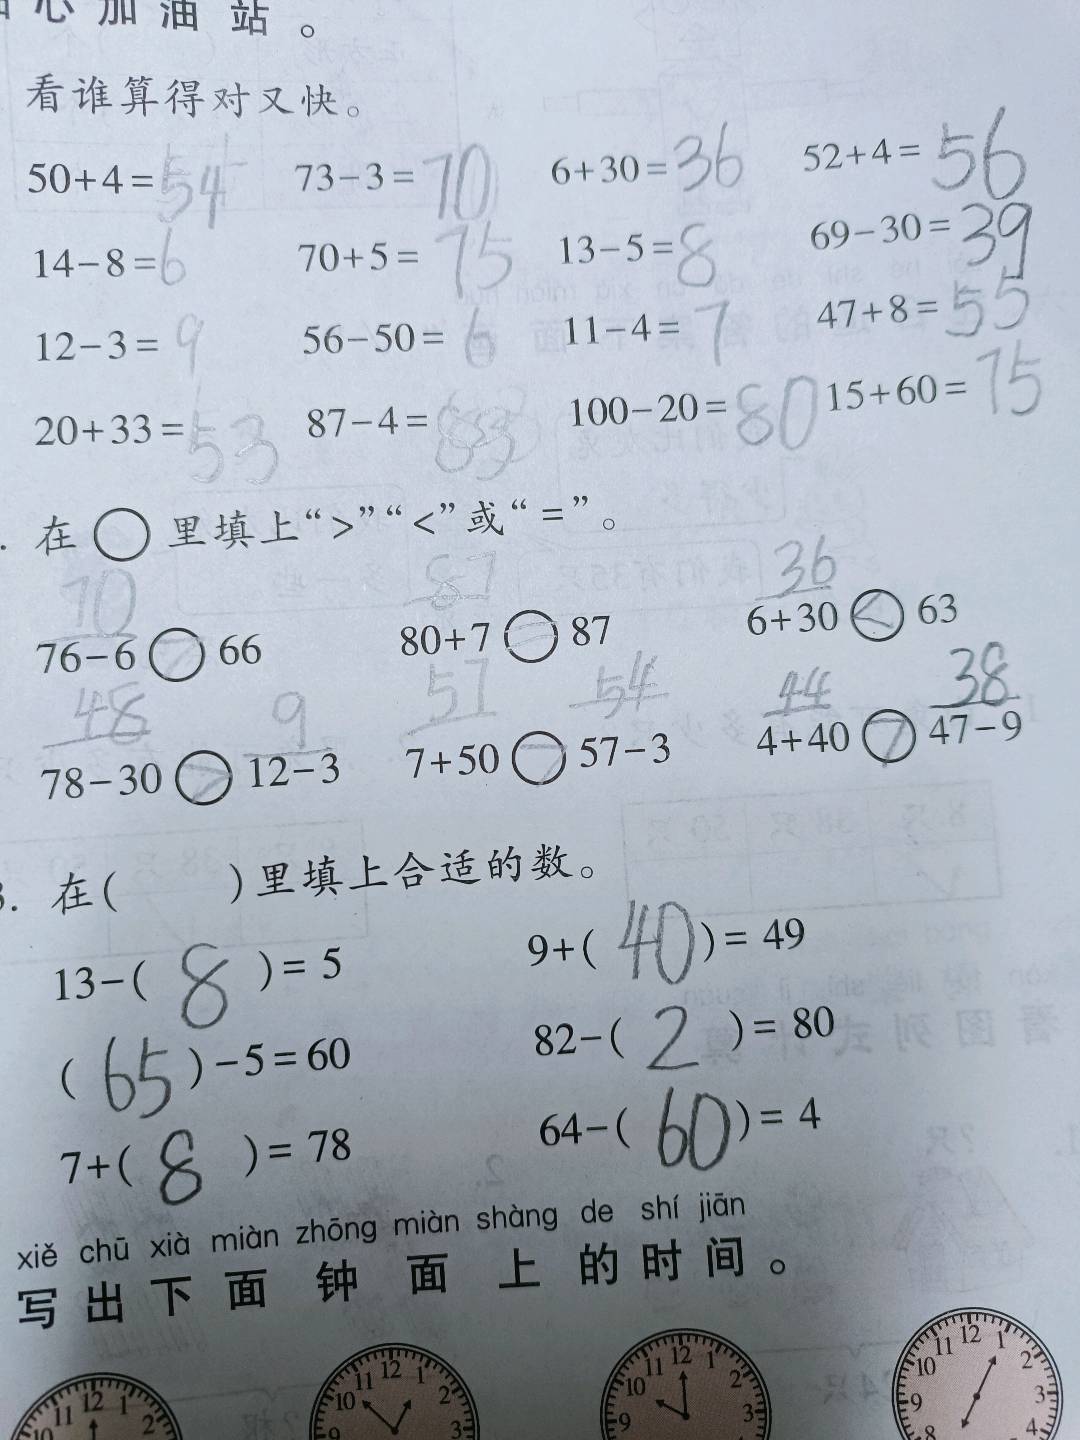 心加油站。
看谁算得对又快。
50+4=54 73-3=70 6+30=36 52+4=56
14-8=6 70+5=75 13-5=8 69-30=39
12-3=9 56-50=6 11-4=7 47+8=55
20+33=53 87-4=83 100-20=80 15+60=75
在○里填上“>”“<”或“=”。
70 87 36
76-6>66 80+7=87 6+30<63
48 9 57 54 44 38
78-30>12-3 7+50>57-3 4+40>47-9
3. 在( )里填上合适的数。
13-(8)=5 9+(40)=49
(65)-5=60 82-(2)=80
7+(8)=78 64-(60)=4
xiě chū xià miàn zhōng miàn shàng de shí jiān
写出下面钟面上的时间。
10 11 12 1 2
9 10 11 12 1 2 3
9 10 11 12 1 2 3
8 9 10 11 12 1 2 3 4